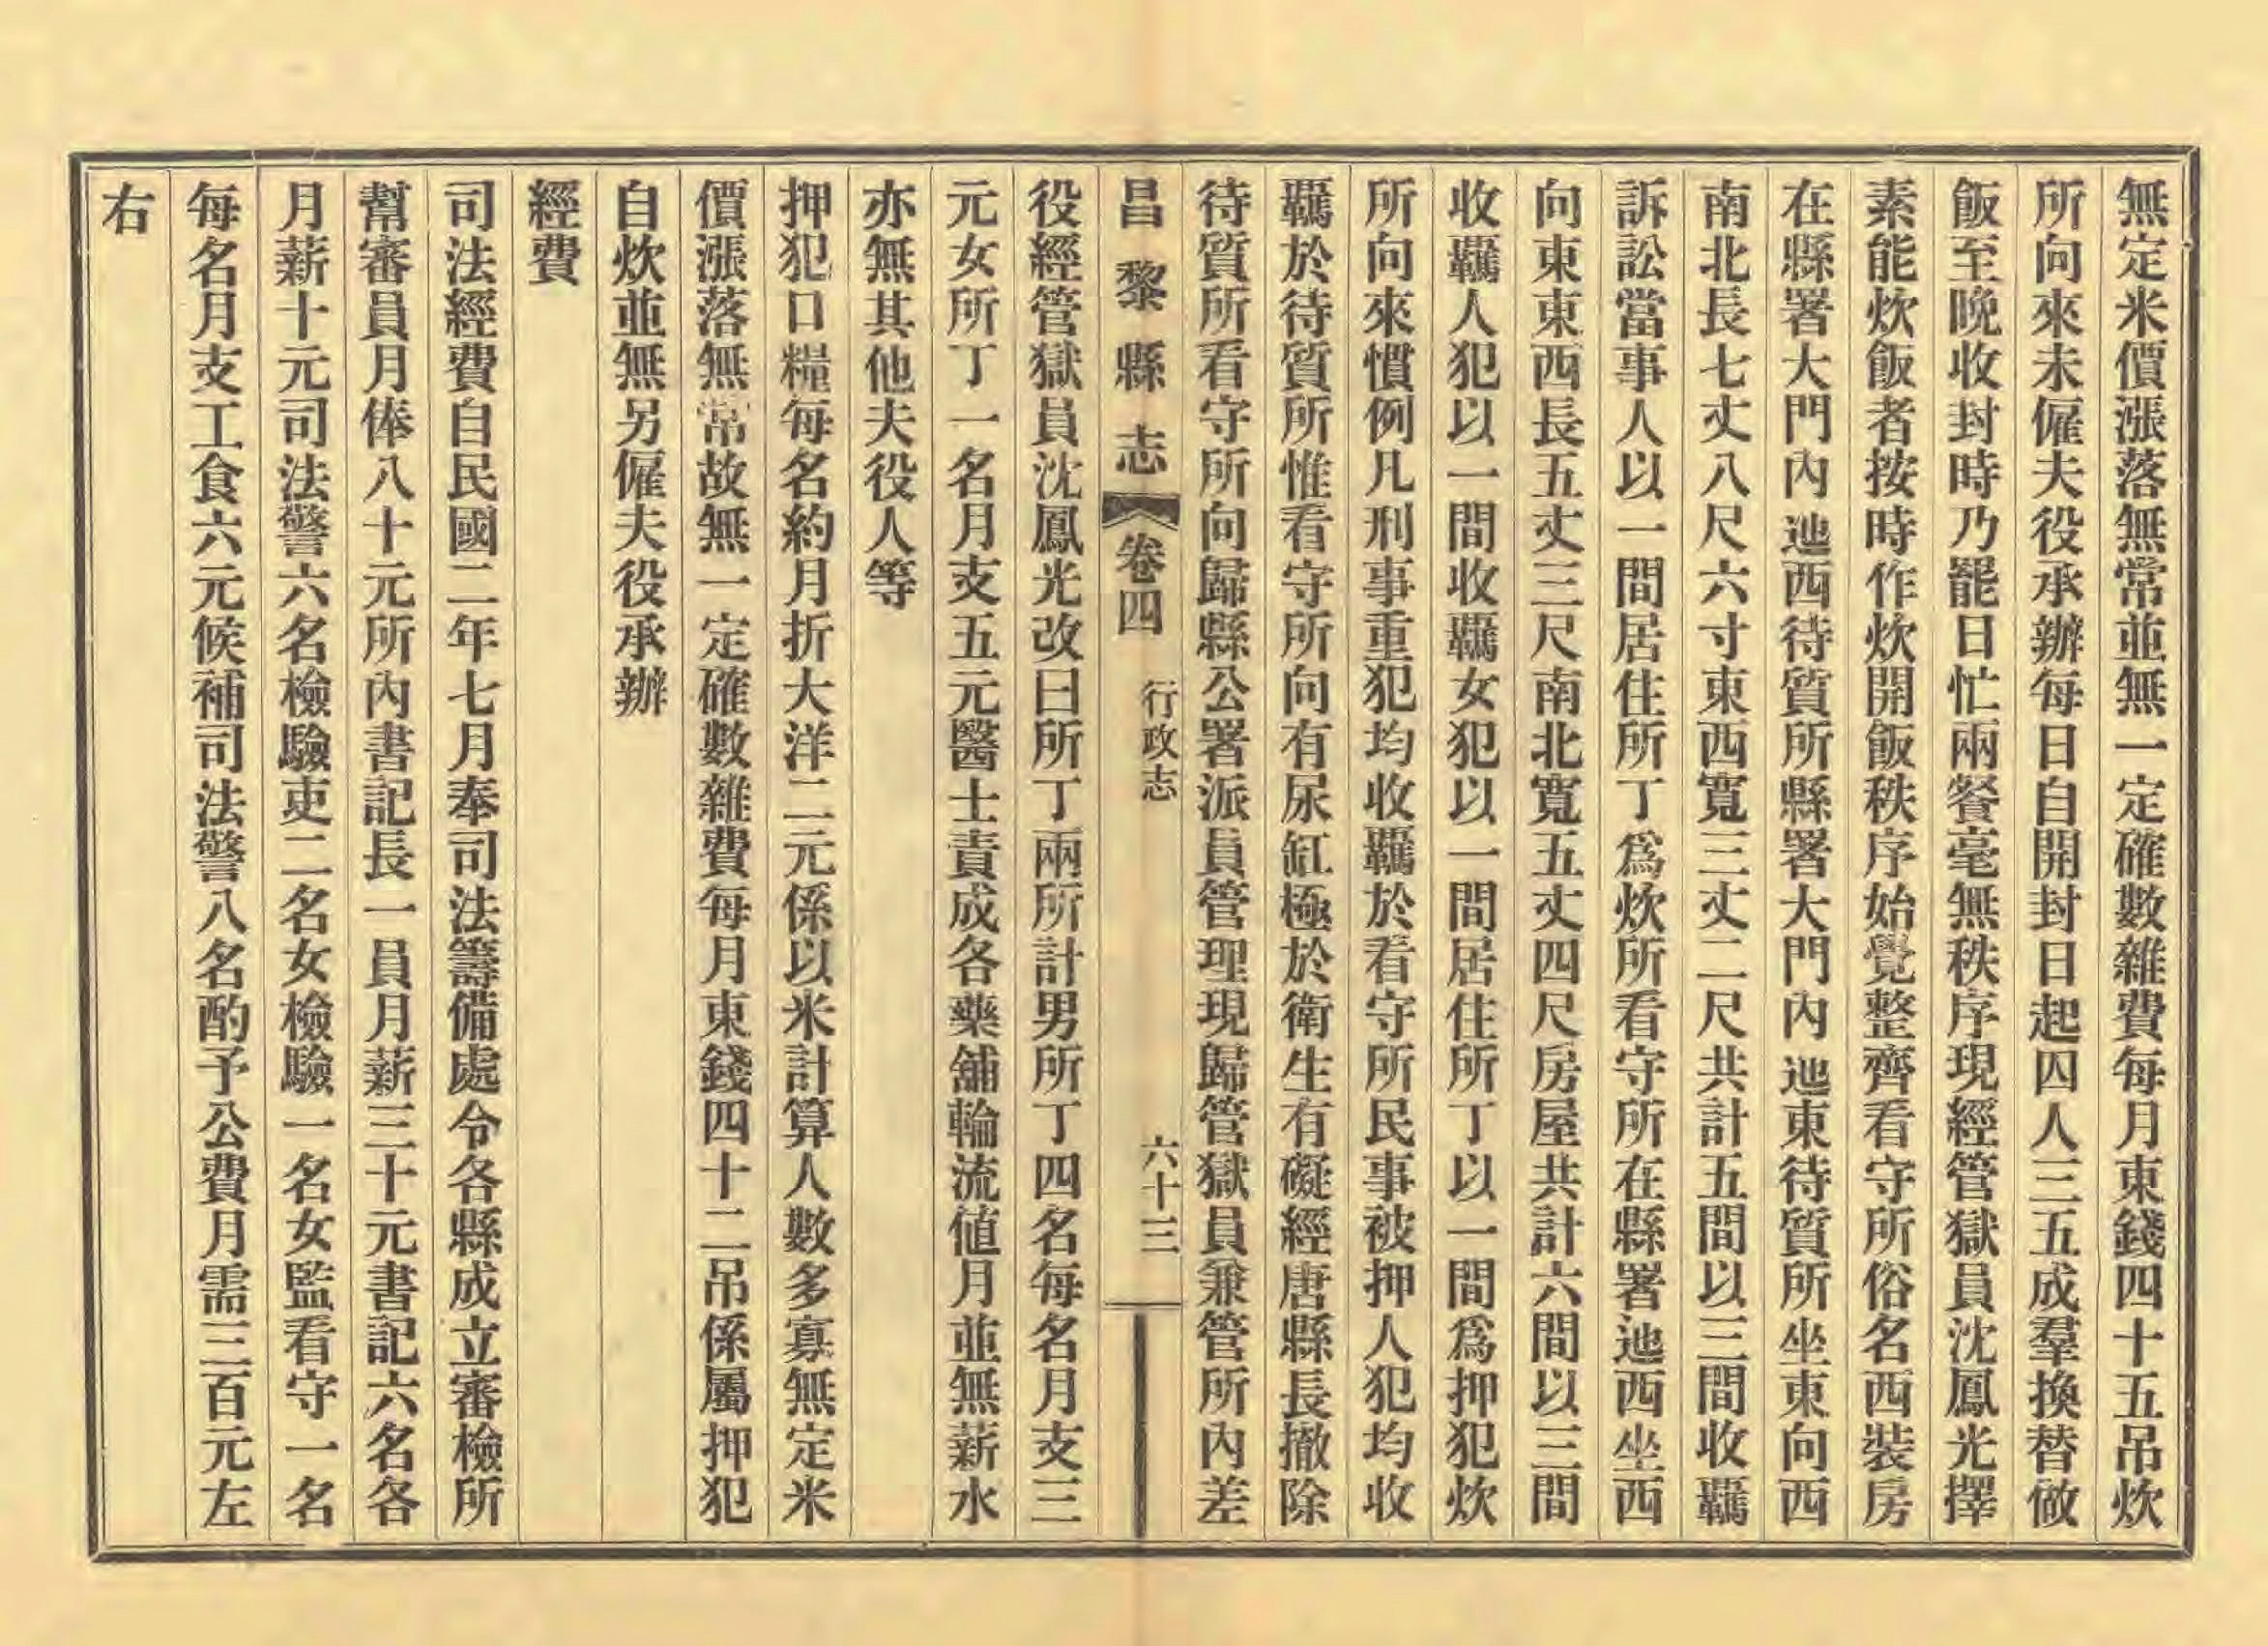 無定米價漲落無常並無一定確數雜費每月東錢四十五吊炊
所向來未僱夫役承辦每日自開封日起囚人三五成羣換替做
飯至晚收封時乃罷日忙兩餐毫無秩序現經管獄員沈鳳光擇
素能炊飯者按時作炊開飯秩序始覺整齊看守所俗名西裝房
在縣署大門內迤西待質所縣署大門內迤東待質所坐東向西
南北長七丈八尺六寸東西寬三丈二尺共計五間以三間收羈
訴訟當事人以一間居住所丁爲炊所看守所在縣署迤西坐西
向東東西長五丈三尺南北寬五丈四尺房屋共計六間以三間
收羈人犯以一間收羈女犯以一間居住所丁以一間爲押犯炊
所向來慣例凡刑事重犯均收羈於看守所民事被押人犯均收
羈於待質所惟看守所向有尿缸極於衛生有礙經唐縣長撤除
待質所看守所向歸縣公署派員管理現歸管獄員兼管所內差
昌黎縣志 卷四 行政志 六十三
役經管獄員沈鳳光改曰所丁兩所計男所丁四名每名月支三
元女所丁一名月支五元醫士責成各藥舖輪流値月並無薪水
亦無其他夫役人等
押犯口糧每名約月折大洋二元係以米計算人數多寡無定米
價漲落無常故無一定確數雜費每月東錢四十二吊係屬押犯
自炊並無另僱夫役承辦
經費
司法經費自民國二年七月奉司法籌備處令各縣成立審檢所
幫審員月俸八十元所內書記長一員月薪三十元書記六名各
月薪十元司法警六名檢驗吏二名女檢驗一名女監看守一名
每名月支工食六元候補司法警八名酌予公費月需三百元左
右